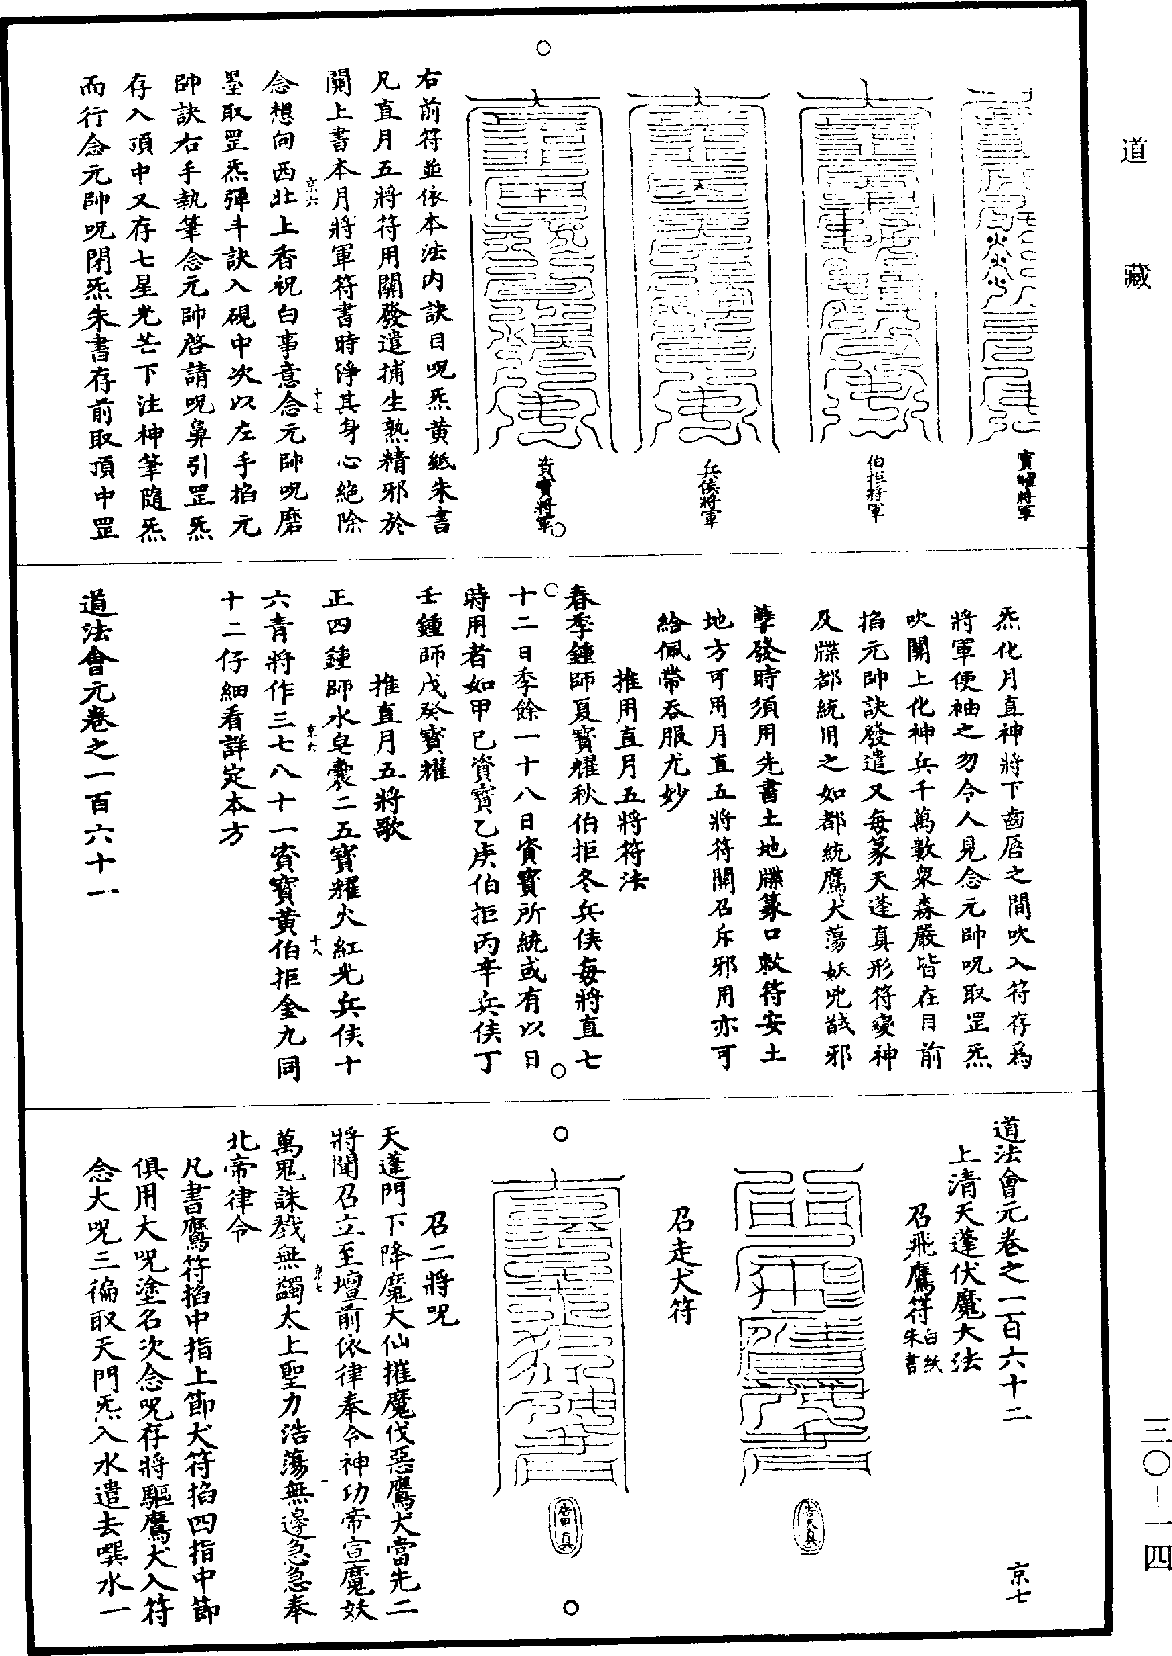 道藏
寶耀將軍
伯拒將軍
兵俠將軍
資寶將軍
右前符並依本法內訣目呪炁黃紙朱書
凡直月五將符用關發遣捕生熟精邪於
關上書本月將軍符書時淨其身心絕除
念想向西北上香祝白事意念元帥呪磨
京六
十七
墨取罡炁彈斗訣入硯中次以左手掐元
帥訣右手執筆念元帥啓請呪鼻引罡炁
存入頂中又存七星光芒下注神筆隨炁
而行念元帥呪閉炁朱書存前取頂中罡
炁化月直神將下齒唇之間吹入符存爲
將軍便袖之勿令人見念元帥呪取罡炁
吹關上化神兵千萬數衆森嚴皆在目前
掐元帥訣發遣又每篆天蓬真形符變神
及牒都統用之如都統鷹犬蕩妖兇馘邪
孽發時須用先書土地牒篆口敕符安土
地方可用月直五將符關召斥邪用亦可
給佩帶吞服尤妙
推用直月五將符法
春季鍾師夏寶耀秋伯拒冬兵俠每將直七
十二日季餘一十八日資寶所統或有以日
時用者如甲己資寶乙庚伯拒丙辛兵俠丁
壬鍾師戊癸寶耀
推直月五將歌
正四鍾師水皂囊二五寶耀火紅光兵俠十
六青將作三七八十一資寶黃伯拒金九同
京六
十八
十二仔細看詳定本方
道法會元卷之一百六十一
道法會元卷之一百六十二
京七
上清天蓬伏魔大法
召飛鷹符白紙朱書
召走犬符
召二將呪
天蓬門下降魔大仙摧魔伐惡鷹犬當先二
將聞召立至壇前依律奉令神功帝宣魔妖
萬鬼誅戮無蠲太上聖力浩蕩無邊急急奉
京七
一
北帝律令
凡書鷹符掐中指上節犬符掐四指中節
俱用大呪塗名次念呪存將驅鷹犬入符
念大呪三徧取天門炁入水遣去噀水一
三〇-一四